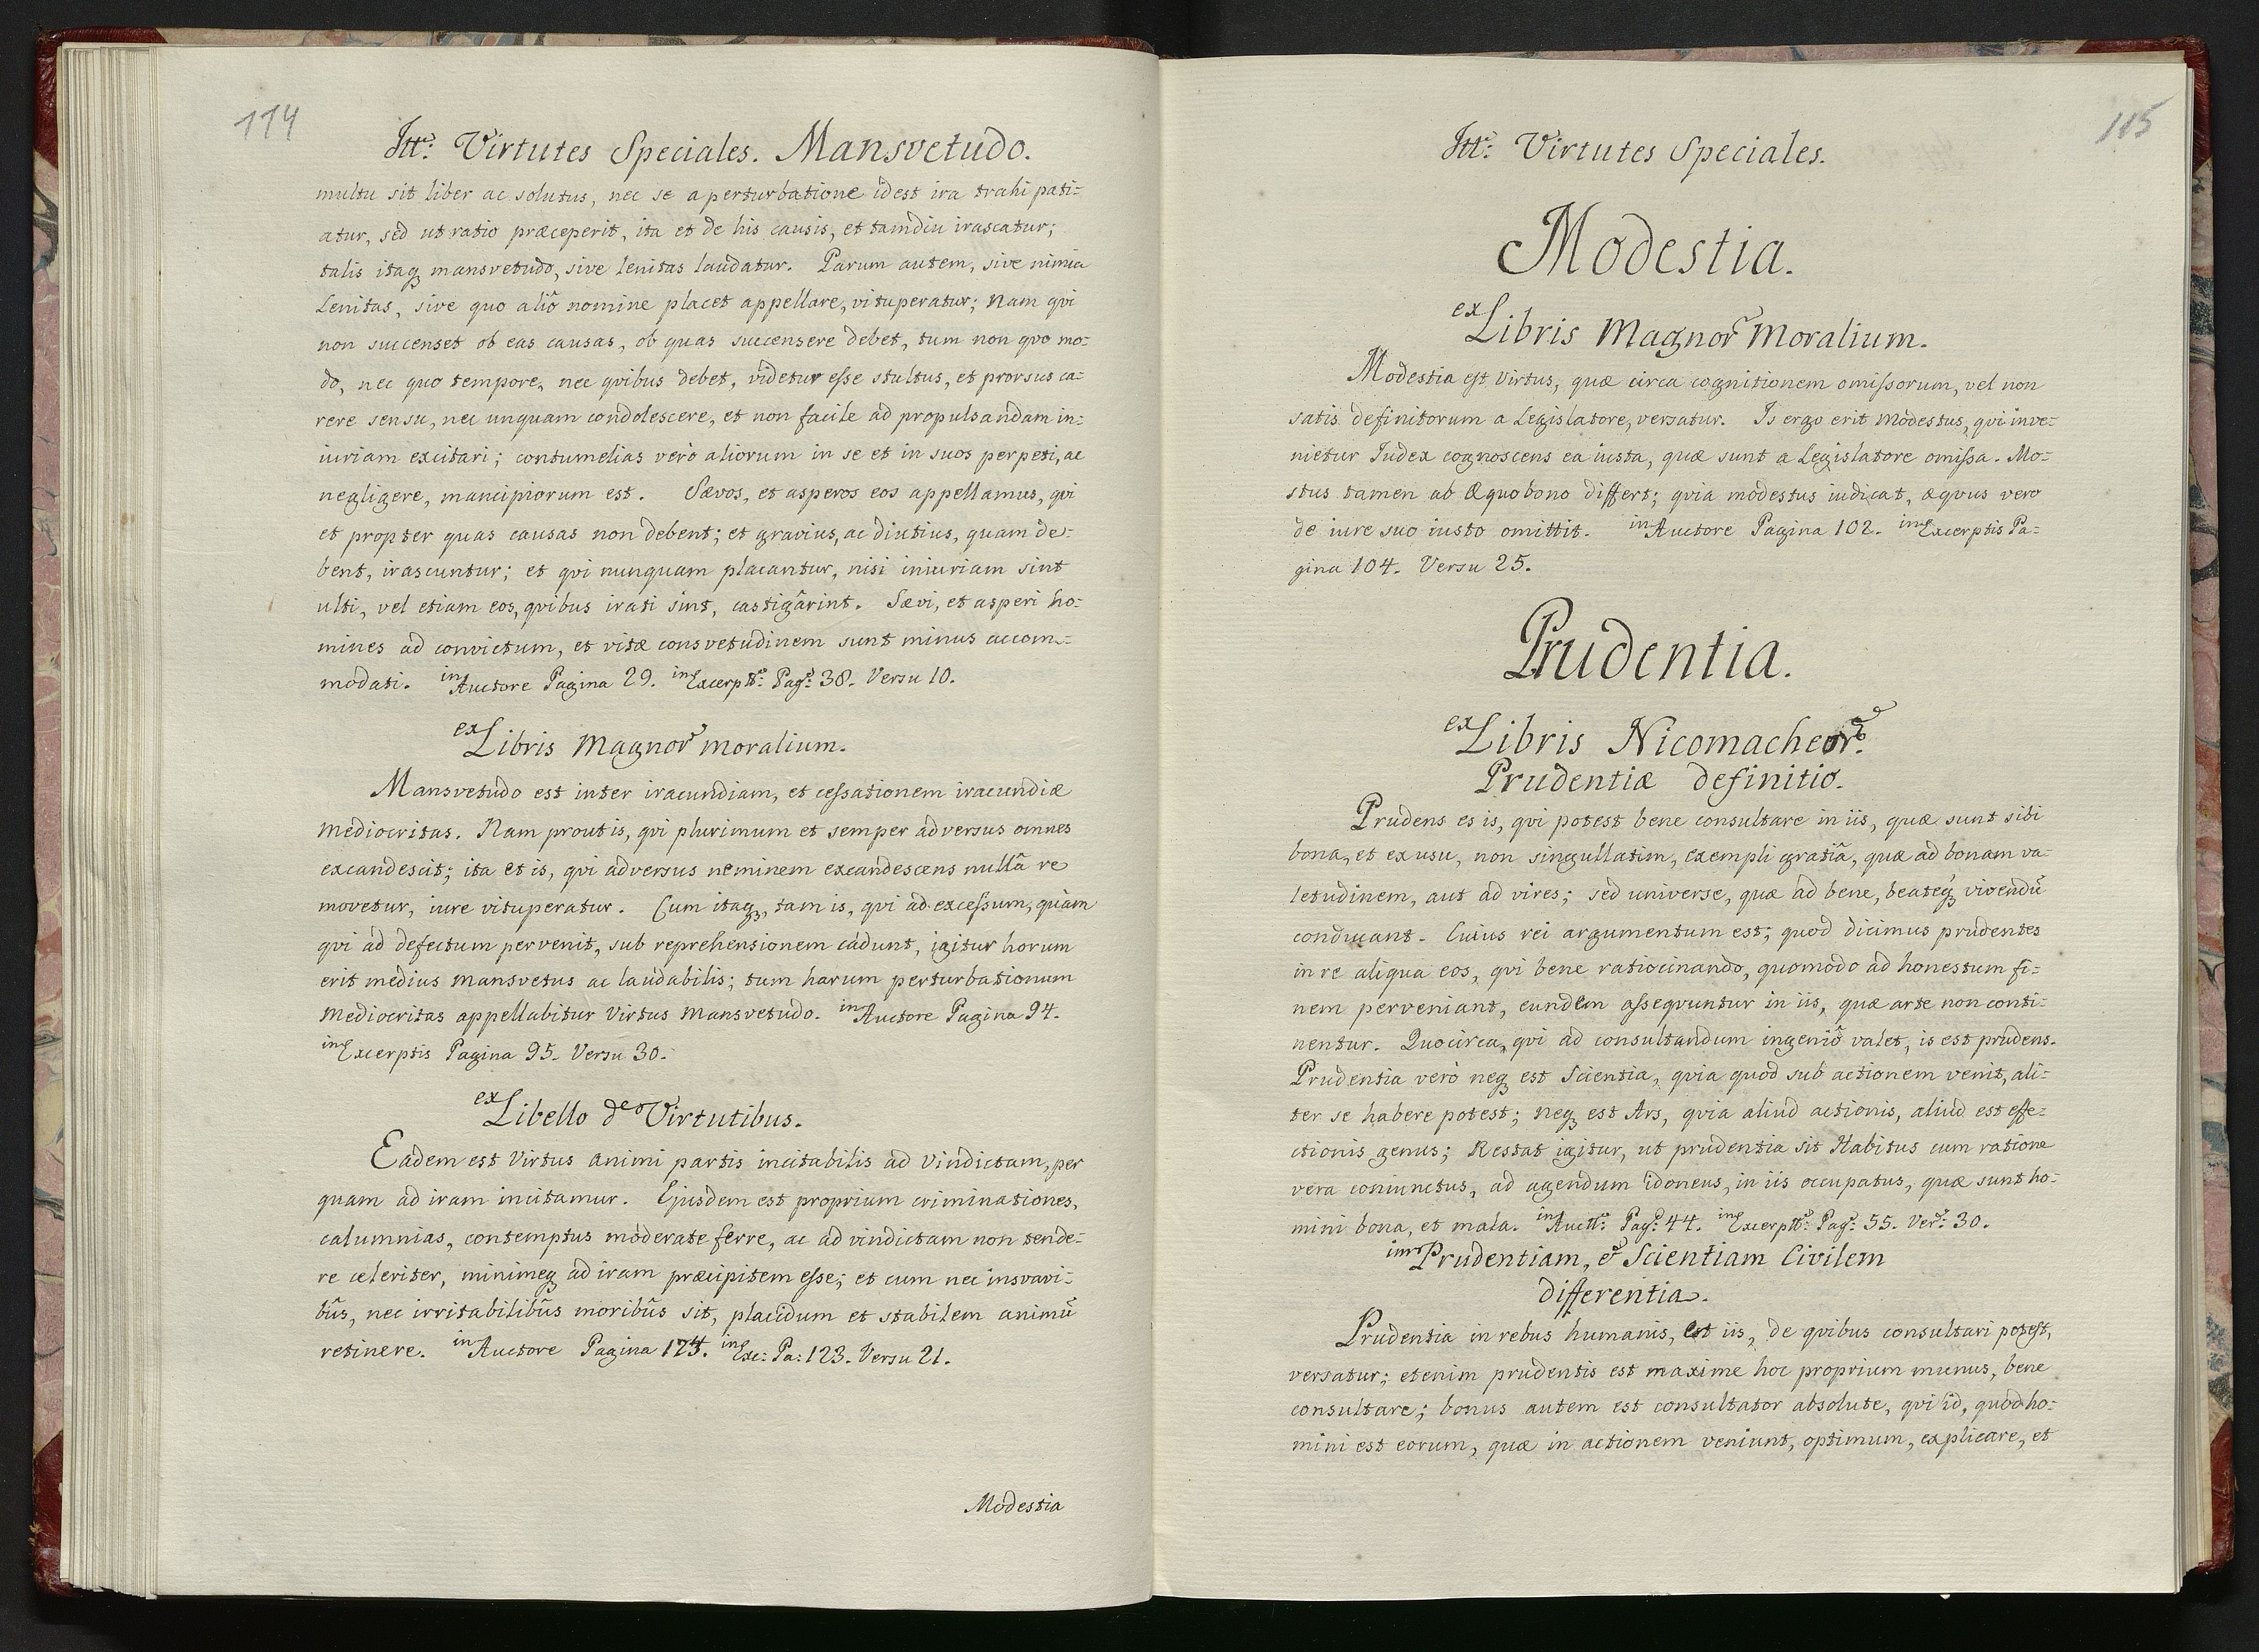 114
Itt: Virtutes Speciales. Mansvetudo.
multu sit liber ac solutus, nec se a perturbatione idest ira trahi pati=
atur, sed ut ratio præceperit, ita et de his causis, et tamdiu irascatur;
talis itaq mansvetudo, sive lenitas laudatur. Parum autem, sive nimia
Lenitas, sive quo aliô nomine placet appellare, vituperatur; Nam qvi
non succenset ob eas causas, ob quas succensere debet, tum non qvo mo=
do, nec quo tempore, nec qvibus debet, videtur esse stultus, et prorsus ca=
rere sensu, nec unquam condolescere, et non facile ad propulsandam in=
iuriam excitari; contumelias verò aliorum in se et in suos perpeti, ac
negligere, mancipiorum est. Sævos, et asperos eos appellamus, qvi
et propter quas causas non debent; et gravius, ac diutius, quam de=
bent, irascuntur; et qvi nunquam placantur, nisi iniuriam sint
ulti, vel etiam eos, qvibus irati sint, castigârint. Sævi, et asperi ho=
mines ad convictum, et vitæ consvetudinem sunt minus accom=
modati. in Auctore Pagina 29. in Excerptt: Pag: 38. Versu 10.
ex Libris Magnor moralium.
Mansvetudo est inter iracundiam, et cessationem iracundiæ
mediocritas. Nam prout is, qvi plurimum et semper adversus omnes
excandescit; ita et is, qvi adversus neminem excandescens nullâ re
movetur, iure vituperatur. Cum itaq, tam is, qvi ad excessum, quàm
qvi ad defectum pervenit, sub reprehensionem cadunt, igitur horum
erit medius mansvetus ac laudabilis; tum harum perturbationum
mediocritas appellabitur Virtus Mansvetudo. in Auctore Pagina 94.
in Excerptis Pagina 95. Versu 30.
ex Libello de Virtutibus.
Eadem est Virtus animi partis incitabilis ad Vindictam, per
quam ad iram incitamur. Ejusdem est proprium criminationes,
calumnias, contemptus moderate ferre, ac ad vindictam non tende=
re celeriter, minimeq ad iram præcipitem esse; et cum nec insvavi=
bûs, nec irritabilibûs moribûs sit, placidum et stabilem animū
retinere. in Auctore Pagina 174. in Exc: Pa: 123. Versu 21.
Modestia
115
Itt: Virtutes Speciales.
Modestia.
ex Libris Magnor Moralium.
Modestia est Virtus, quæ circa cognitionem omissorum, vel non
satis definitorum a Legislatore, versatur. Is ergo erit Modestus, qvi inve=
nietur Iudex cognoscens ea iusta, quæ sunt a Legislatore omissa. Mo=
stus tamen ab Æquobono differt; qvia modestus iudicat, æqvus vero
de iure suo iusto omittit. in Auctore Pagina 102. in Excerptis Pa=
gina 104. Versu 25.
Prudentia.
ex Libris Nicomacheor.
Prudentiæ definitio.
Prudens es is, qvi potest bene consultare in iis, quæ sunt sibi
bona, et ex usu, non singullatim, exempli gratiâ, quæ ad bonam va=
letudinem, aut ad vires; sed universe, quæ ad bene, beateq vivendū
conducant. Cuius rei argumentum est; quod dicimus prudentes
in re aliqua eos, qvi bene ratiocinando, quomodo ad honestum fi=
nem perveniant, eundem asseqvuntur in iis, quæ arte non conti=
nentur. Quocirca, qvi ad consultandum ingeniô valet, is est prudens.
Prudentia verò neq est Scientia, qvia quod sub actionem venit, ali=
ter se habere potest; neq est Ars, qvia aliud actionis, aliud est effe=
ctionis genus; Restat igitur, ut prudentia sit Habitus cum ratione
vera coniunctus, ad agendum idoneus, in iis occupatus, quæ sunt ho=
mini bona, et mala. in Auctt: Pag: 44. in Excerptt: Pag: 55. Ver: 30.
inr Prudentiam, et Scientiam Civilem
differentia.
Prudentia in rebus humanis, et iis, de qvibus consultari potest,
versatur; etenim prudentis est maxime hoc proprium munus, bene
consultare; bonus autem est consultator absolute, qvi id, quod ho=
mini est eorum, quæ in actionem veniunt, optimum, explicare, et